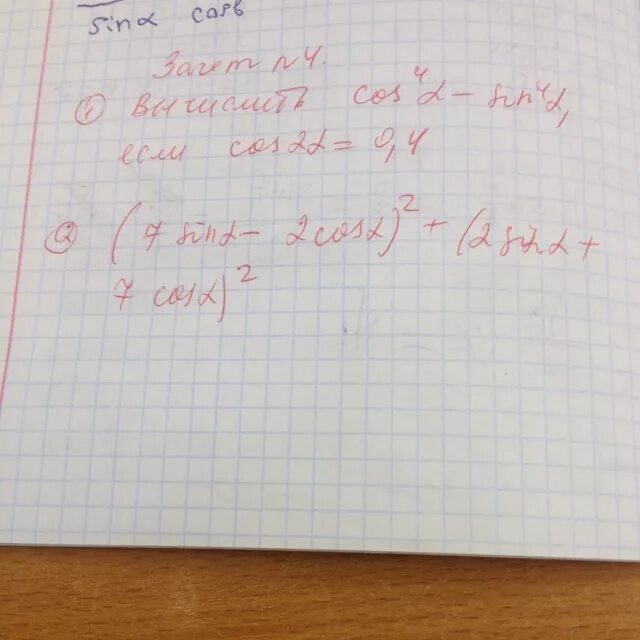 sinα cosβ
Зачет n4.
① Вычислить cos⁴α - sin⁴α,
если cos2α = 0,4
② (7 sinα - 2cosα)² + (2 sinα +
7 cosα)²